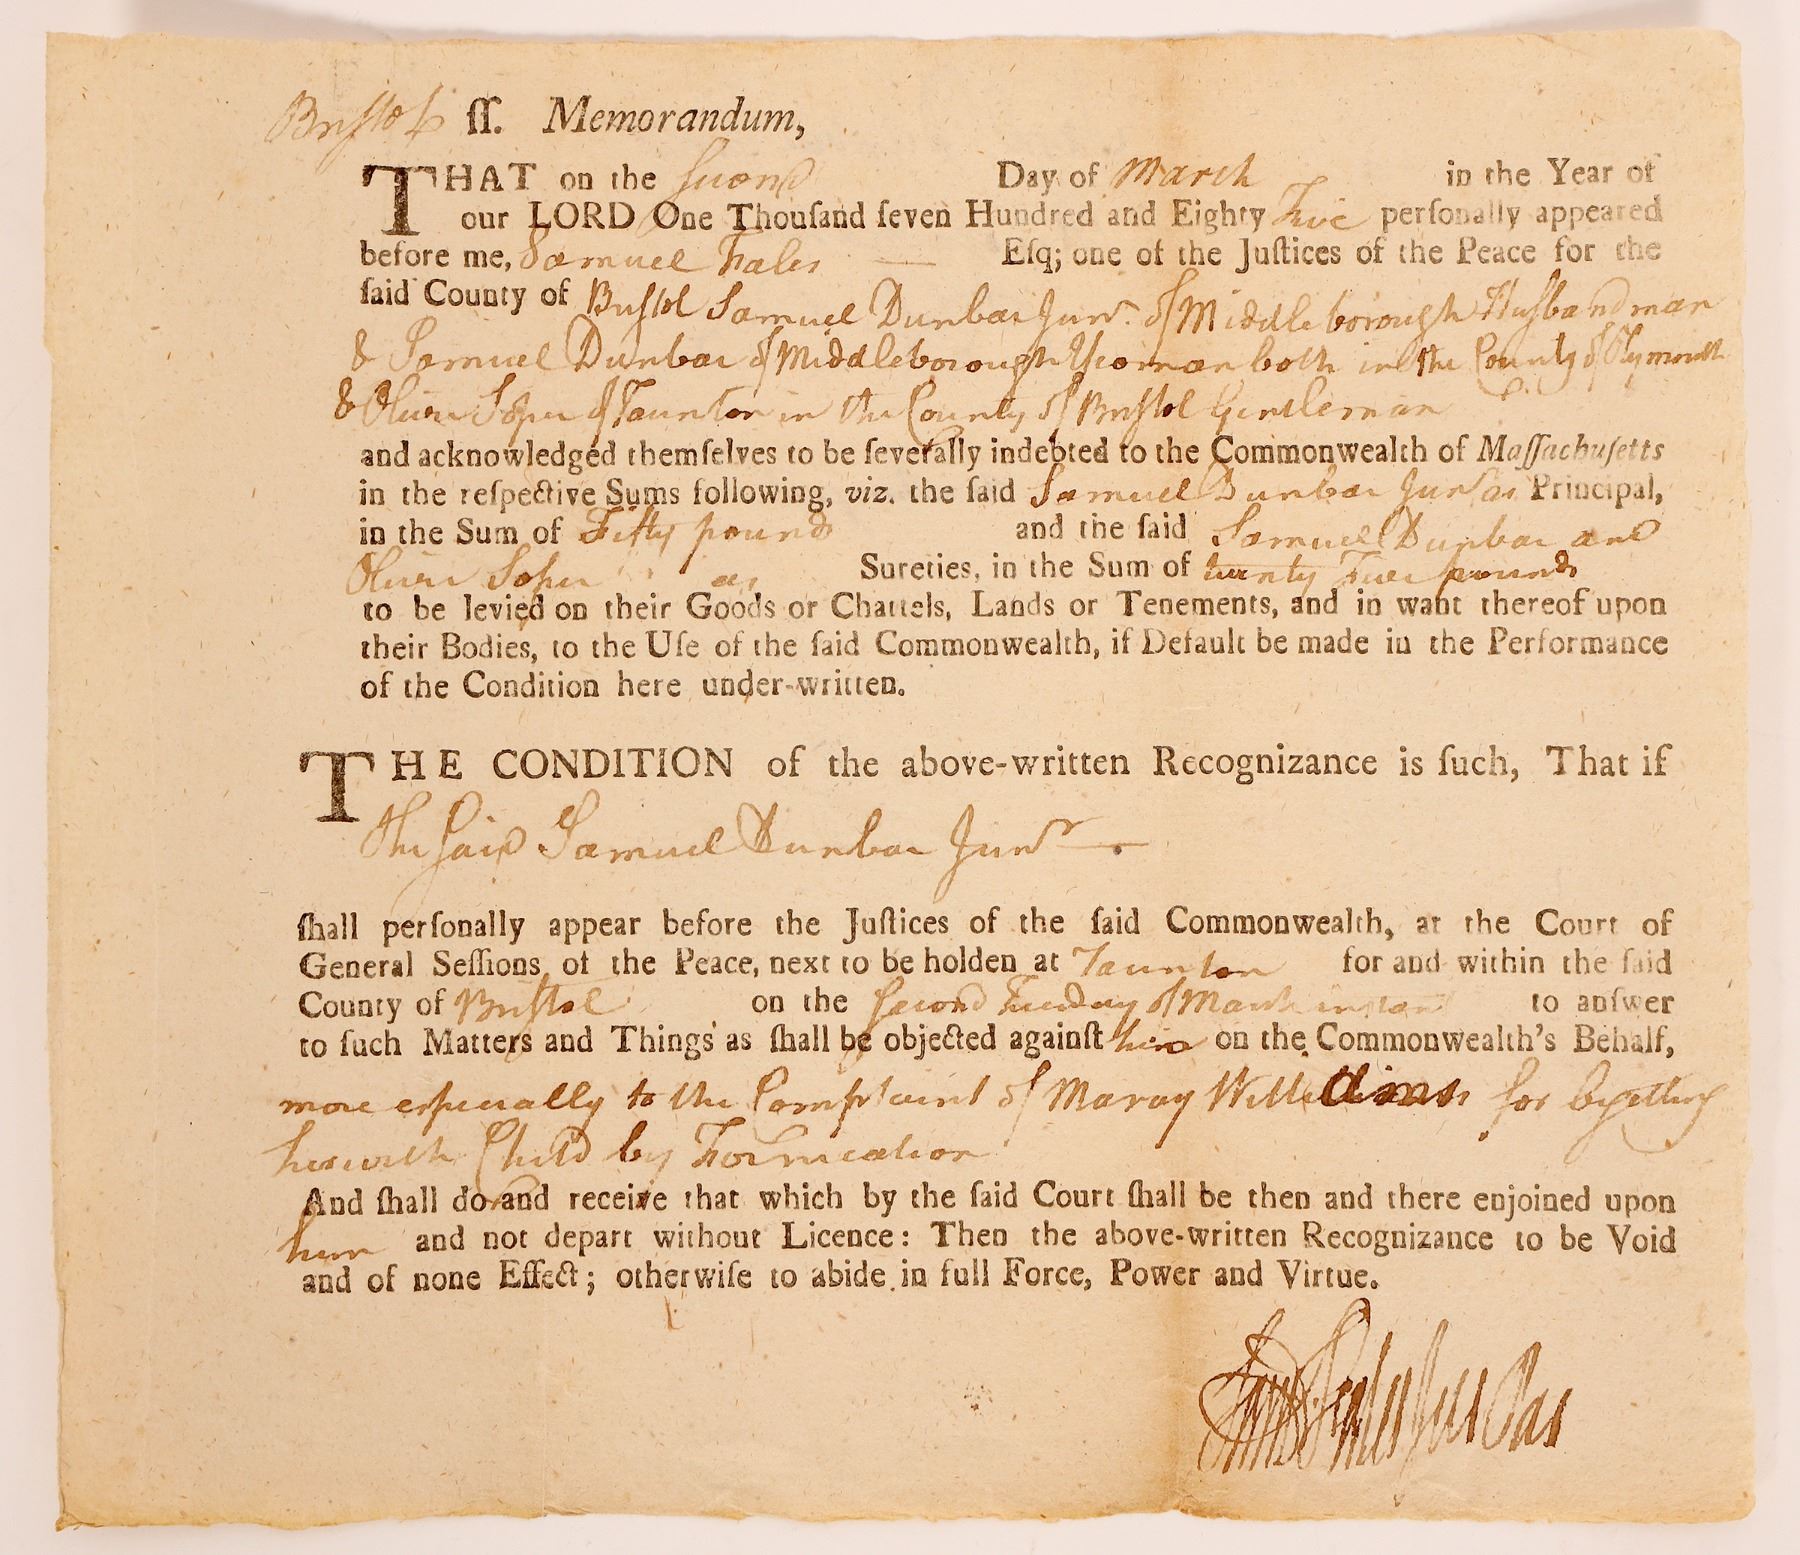 Bristol ſſ. Memorandum,
THAT on the Second Day of March in the Year of
our LORD One Thouſand ſeven Hundred and Eighty Five perſonally appeared
before me, Samuel Fales Eſq; one of the Juſtices of the Peace for the
ſaid County of Bristol Samuel Dunbar Junr. of Middleborough Husbandman
& Samuel Dunbar of Middleborough Yeoman both in the County of Plymouth
& Oliver Soper of Taunton in the County of Bristol Gentleman
and acknowledged themſelves to be ſeverally indebted to the Commonwealth of Maſſachuſetts
in the reſpective Sums following, viz. the ſaid Samuel Dunbar Junr as Principal,
in the Sum of Fifty pounds and the ſaid Samuel Dunbar and
Oliver Soper as Sureties, in the Sum of twenty Five pounds
to be levied on their Goods or Chattels, Lands or Tenements, and in want thereof upon
their Bodies, to the Uſe of the ſaid Commonwealth, if Default be made in the Performance
of the Condition here under-written.
THE CONDITION of the above-written Recognizance is ſuch, That if
the ſaid Samuel Dunbar Junr
ſhall perſonally appear before the Juſtices of the ſaid Commonwealth, at the Court of
General Seſſions of the Peace, next to be holden at Taunton for and within the ſaid
County of Bristol on the Second Tuesday of March instant to anſwer
to ſuch Matters and Things as ſhall be objected againſt him on the Commonwealth's Behalf,
more especially to the Complaint of Maray for begetting
her with Child by Fornication
And ſhall do and receive that which by the ſaid Court ſhall be then and there enjoined upon
him and not depart without Licence: Then the above-written Recognizance to be Void
and of none Effect; otherwiſe to abide in full Force, Power and Virtue.
Samll Fales Jus Pac